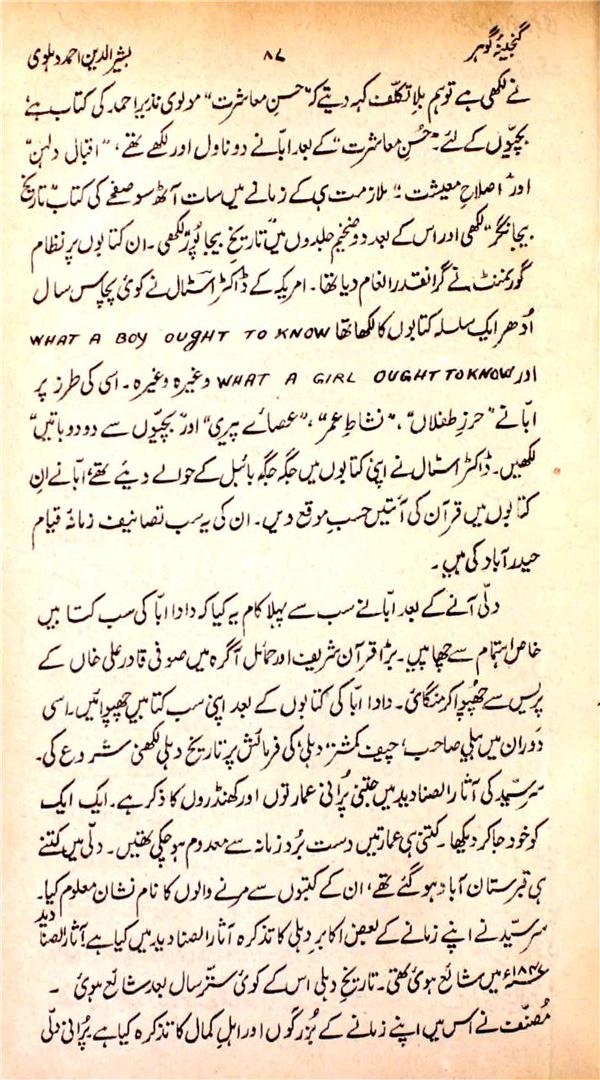 گنجینۂ گوہر ۸۷ بشیرالدین احمد دہلوی
نے لکھی ہے تو ہم بلا تکلّف کہہ دیتے کہ "حسنِ معاشرت" مولوی نذیر احمد کی کتاب ہے
بچیوں کے لئے۔ "حُسنِ معاشرت" کے بعد ابّا نے دو ناول اور لکھے تھے، "اقبال دلہن"
اور "اصلاحِ معیشت"۔ ملازمت ہی کے زمانے میں سات آٹھ سو صفحے کی کتاب "تاریخ
بیجانگر" لکھی اور اس کے بعد دو ضخیم جلدوں میں "تاریخِ بیجاپُور" لکھی۔ ان کتابوں پر نظام
گورنمنٹ نے گرانقدر انعام دیا تھا۔ امریکہ کے ڈاکٹر اسٹال نے کوئی پچاس سال
اُدھر ایک سلسلہ کتابوں کا لکھا تھا WHAT A BOY OUGHT TO KNOW
اور WHAT A GIRL OUGHT TO KNOW وغیرہ وغیرہ۔ اسی کی طرز پر
ابّا نے "حرزِ طفلاں"، "نشاطِ عمر"، "عصائے پیری" اور "بچیّوں سے دو دو باتیں"
لکھیں۔ ڈاکٹر اسٹال نے اپنی کتابوں میں جگہ جگہ بائبل کے حوالے دیئے تھے، ابّا نے ان
کتابوں میں قرآن کی آیتیں حسبِ موقع دیں۔ ان کی یہ سب تصانیف زمانۂ قیام
حیدر آباد کی ہیں۔
دلّی آنے کے بعد ابّا نے سب سے پہلا کام یہ کیا کہ دادا ابّا کی سب کتابیں
خاص اہتمام سے چھاپیں۔ بڑا قرآن شریف اور حمائل آگرہ میں صوفی قادر علی خاں کے
پریس سے چھپوا کر منگائی۔ دادا ابّا کی کتابوں کے بعد اپنی سب کتابیں چھپوائیں۔ اسی
دَوران میں ہیلی صاحب، چیف کمشنر دہلی، کی فرمائش پر تاریخ دہلی لکھنی شروع کی۔
سرسیّد کی آثار الصنادید میں جتنی پُرانی عمارتوں اور کھنڈروں کا ذکر ہے۔ ایک ایک
کو خود جا کر دیکھا۔ کتنی ہی عمارتیں دست بُردِ زمانہ سے معدوم ہو چکی تھیں۔ دلّی میں کتنے
ہی قبرستان آباد ہو گئے تھے، ان کے کتبوں سے مرنے والوں کا نام نشان معلوم کیا۔
سر سیّد نے اپنے زمانے کے بعض اکابرِ دہلی کا تذکرہ آثار الصنادید میں کیا ہے۔ آثار الصنادید
۱۸۴۷ء میں شائع ہوئی تھی۔ تاریخِ دہلی اس کے کوئی ستّر سال بعد شائع ہوئی۔
مُصنّف نے اس میں اپنے زمانے کے بُزرگوں اور اہلِ کمال کا تذکرہ کیا ہے۔ پُرانی دلّی